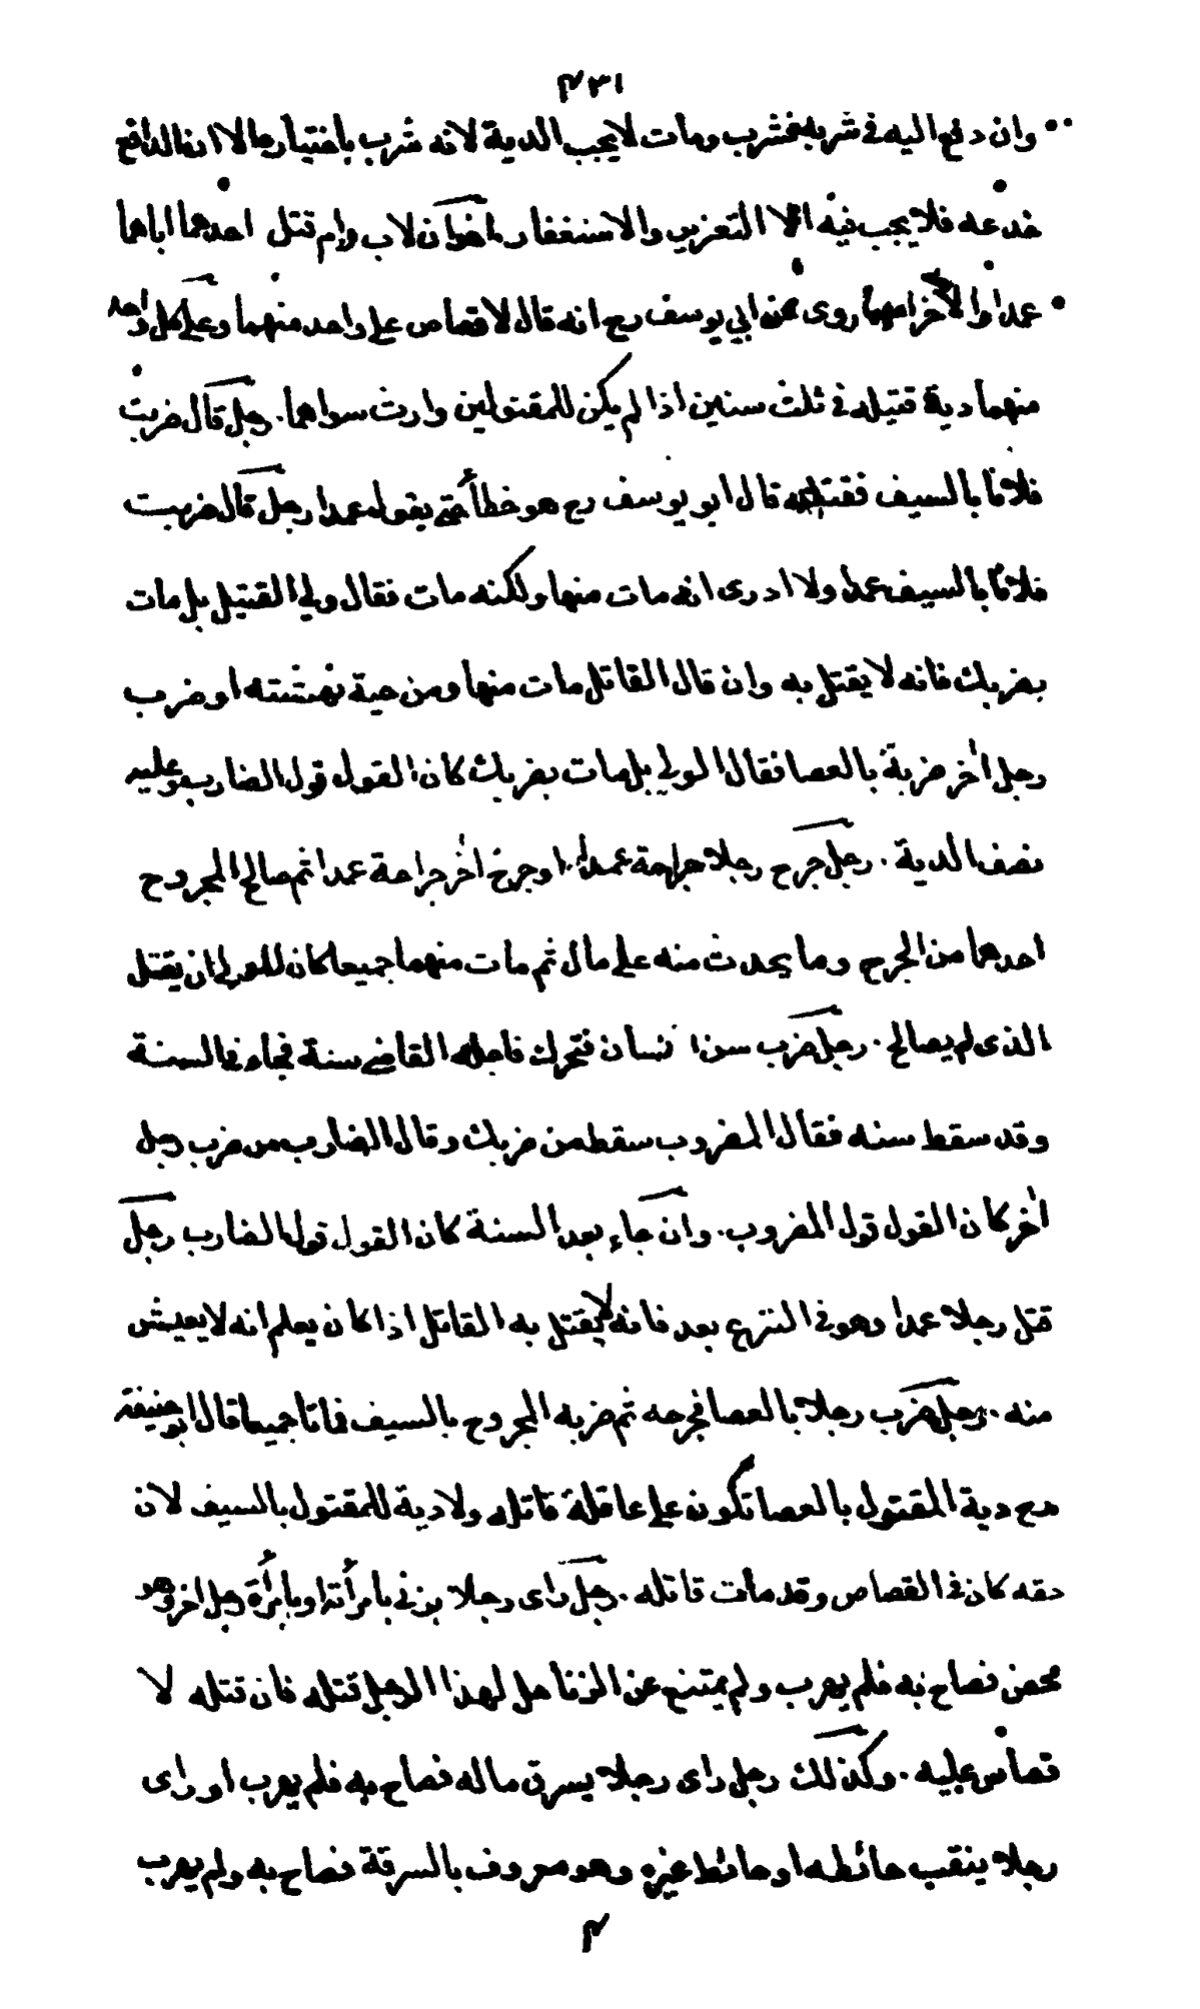 ٤٣١
وان دفع اليه في شربة فشرب ومات لا يجب الدية لانه شرب باختياره الا ان الدافع
خدعه فلا يجب فيه الا التعزير والاستغفار. اخوان لاب وام قتل احدهما اباهما
عمدا والآخر امهما روى عن ابي يوسف رح انه قال لا قصاص على واحد منهما وعلى كل واحد
منهما دية قتيله في ثلث سنين اذا لم يكن للمقتولين وارث سواهما. رجل قال ضربت
فلانا بالسيف فقتلته قال ابو يوسف رح هو خطأ حتى يقول عمدا رجل قال ضربت
فلانا بالسيف عمدا ولا ادرى انه مات منها ولكنه مات فقال ولي القتيل بل مات
بضربك فانه لا يقتل به وان قال القاتل مات منها ومن حية نهشته او ضرب
رجل اخر ضربة بالعصا فقال الولي بل مات بضربك كان القول قول الضارب وعليه
نصف الدية. رجل جرح رجلا جراحة عمدا. او جرح اخر جراحة عمدا ثم صالح المجروح
احدهما من الجرح وما يحدث منه على مال ثم مات منهما جميعا كان للولي ان يقتل
الذى لم يصالح. رجل ضرب سن انسان فتحرك فاجله القاضي سنة فجاء في السنة
وقد سقط سنه فقال المضروب سقط من ضربك وقال الضارب من ضرب رجل
اخر كان القول قول المضروب. وان جاء بعد السنة كان القول قول الضارب رجل
قتل رجلا عمدا وهو في النزع بعد فانه يقتل به القاتل اذا كان يعلم انه لا يعيش
منه. رجل ضرب رجلا بالعصا فجرحه ثم ضربه المجروح بالسيف فماتا جميعا قال ابو حنيفة
رح دية المقتول بالعصا تكون على عاقلة قاتله ولا دية للمقتول بالسيف لان
حقه كان في القصاص وقد مات قاتله. رجل راى رجلا يزني بامرأته او بامرأة رجل اخر وهو
محصن فصاح به فلم يهرب ولم يمتنع عن الزنا حل لهذا الرجل قتله فان قتله لا
قصاص عليه. وكذلك رجل راى رجلا يسرق ماله فصاح به فلم يهرب او راى
رجلا ينقب حائطه او حائط غيره وهو معروف بالسرقة فصاح به ولم يهرب